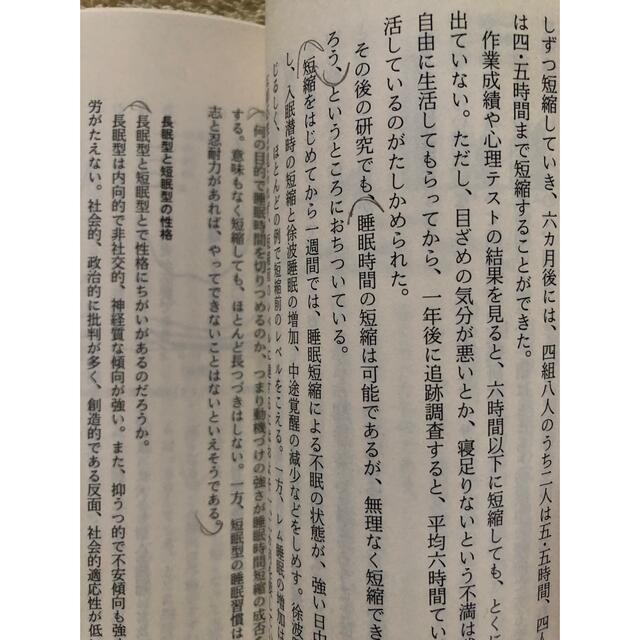 しずつ短縮していき、六ヵ月後には、四組八人のうち二人は五・五時間、四
は四・五時間まで短縮することができた。
作業成績や心理テストの結果を見ると、六時間以下に短縮しても、とくに
出ていない。ただし、目ざめの気分が悪いとか、寝足りないという不満は
自由に生活してもらってから、一年後に追跡調査すると、平均六時間てい
活しているのがたしかめられた。
その後の研究でも、睡眠時間の短縮は可能であるが、無理なく短縮でき
ろう、というところにおちついている。
短縮をはじめてから一週間では、睡眠短縮による不眠の状態が、強い日中
し、入眠潜時の短縮と徐波睡眠の増加、中途覚醒の減少などをしめす。徐波
じるしく、ほとんどの例で短縮前のレベルをこえる。一方、レム睡眠の増加は
何の目的で睡眠時間を切りつめるのか、つまり動機づけの強さが睡眠時間短縮の成否を
する。意味もなく短縮しても、ほとんど長つづきはしない。一方、短眠型の睡眠習慣は
志と忍耐力があれば、やってできないことはないといえそうである。
長眠型と短眠型の性格
長眠型と短眠型とで性格にちがいがあるのだろうか。
長眠型は内向的で非社交的、神経質な傾向が強い。また、抑うつ的で不安傾向も強
労がたえない。社会的、政治的に批判が多く、創造的である反面、社会的適応性が低